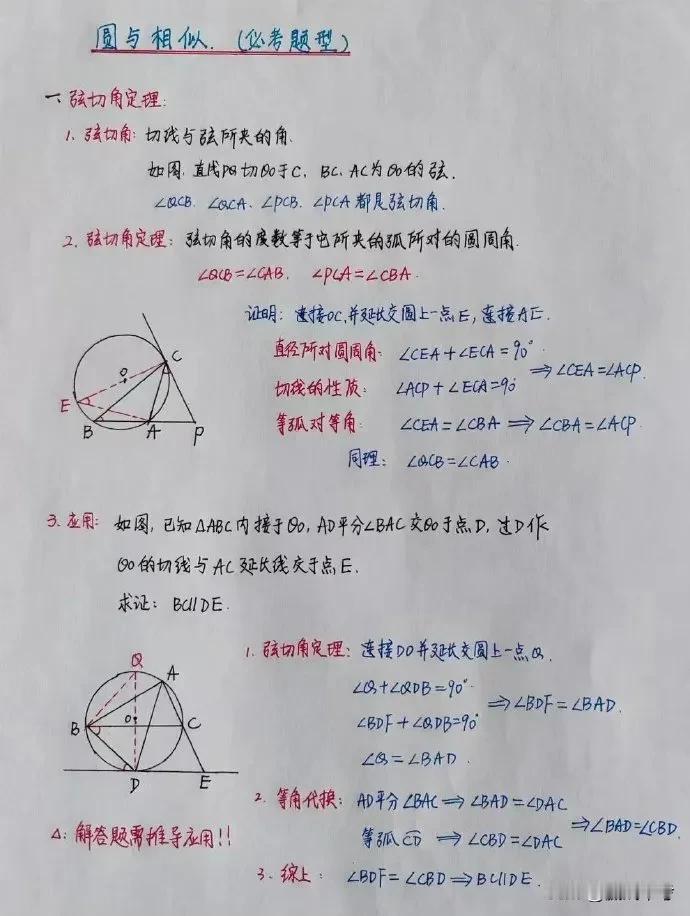 圆与相似.(必考题型)
一、弦切角定理:
1. 弦切角: 切线与弦所夹的角.
如图,直线PQ切⊙O于C, BC, AC为⊙O的弦.
∠QCB、∠QCA、∠PCB、∠PCA都是弦切角.
2. 弦切角定理: 弦切角的度数等于它所夹的弧所对的圆周角.
∠QCB=∠CAB, ∠PCA=∠CBA.
证明: 连接OC,并延长交圆上一点E,连接AE.
直径所对圆周角: ∠CEA+∠ECA=90°
切线的性质: ∠ACP+∠ECA=90°
⟹∠CEA=∠ACP.
等弧对等角: ∠CEA=∠CBA⟹∠CBA=∠ACP.
同理: ∠QCB=∠CAB.
O
C
E
B
A
P
3. 应用: 如图,已知△ABC内接于⊙O, AD平分∠BAC交⊙O于点D,过D作
⊙O的切线与AC延长线交于点E.
求证: BC∥DE.
Q
A
B
O
C
D
E
1. 弦切角定理: 连接DO并延长交圆上一点Q.
∠Q+∠QDB=90°
∠BDF+∠QDB=90°
⟹∠BDF=∠BAD.
∠Q=∠BAD.
2. 等角代换: AD平分∠BAC⟹∠BAD=∠DAC
等弧CD ⟹∠CBD=∠DAC
⟹∠BAD=∠CBD.
△: 解答题需推导应用!!
3. 综上: ∠BDF=∠CBD⟹BC∥DE.